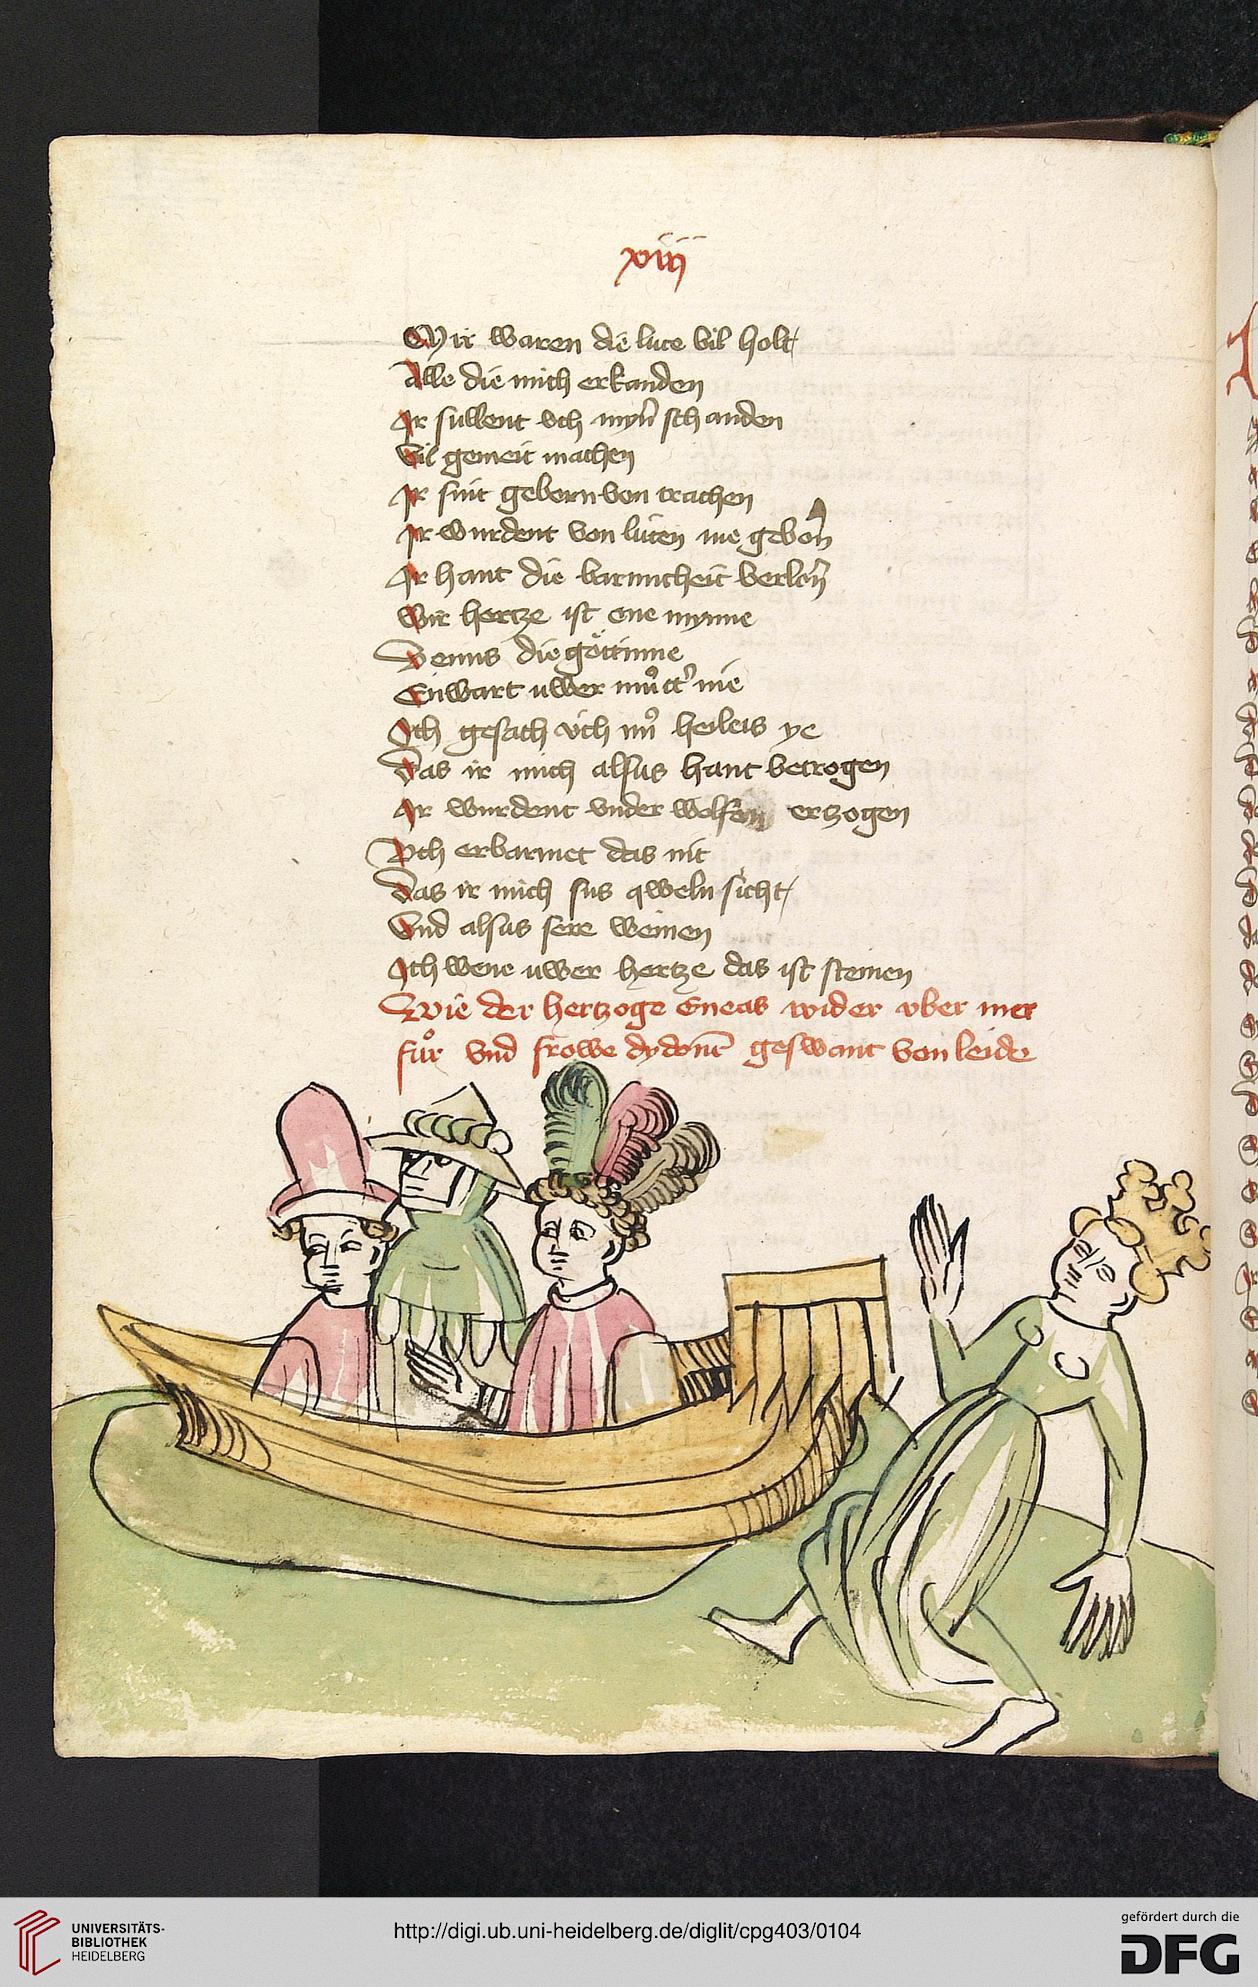 xiiij
Mir waren die lute vil holt
Alle die mich erkanden
Ir sullent uch myn̄ schanden
vil gemeit machen
Ir sint geborn von trachen
Ir wurdent von luten nie geborn̄
Ir hant die barmicheit verlorn̄
Wir hertze ist one mynne
Venus die göttinne
Enwart uwer muͦtt' nie
Ich gesach uch heileis ye
Das ir mich alsus hant betrogen
Ir wurdent under wolfen erzogen
Uch erbarmet das nit
Das ir mich sus qweln sicht
Und alsus sere weinen
Ich wene uwer hertze das ist steinen
Wie der hertzoge Eneas wider vber mer
fuͦr vnd frowe dydont geswant von leide
UNIVERSITÄTS-
BIBLIOTHEK
HEIDELBERG
http://digi.ub.uni-heidelberg.de/diglit/cpg403/0104
gefördert durch die
DFG